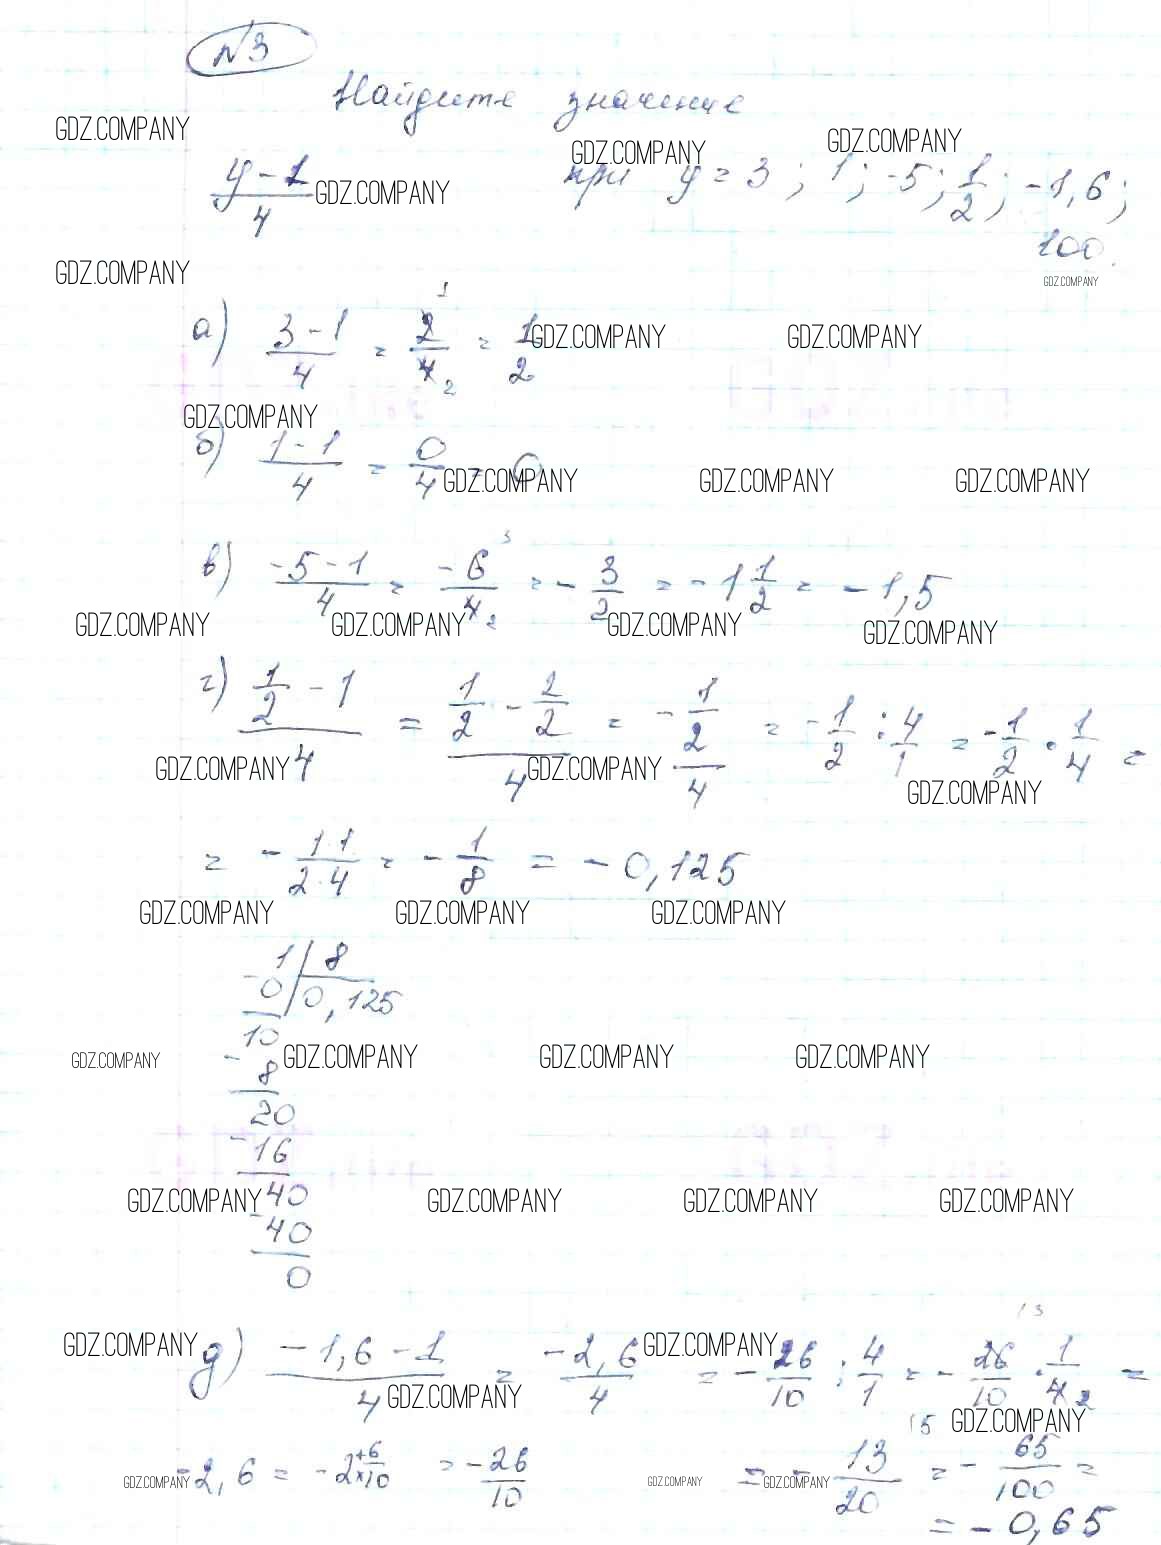 №3
Найдите значение
GDZ.COMPANY
GDZ.COMPANY GDZ.COMPANY
(y-1)/4 GDZ.COMPANY при y = 3; 1; -5; 1/2; -1,6;
100.
GDZ.COMPANY GDZ.COMPANY
а) (3-1)/4 = 2/4 = 1/2 GDZ.COMPANY GDZ.COMPANY
1 2
GDZ.COMPANY
б) (1-1)/4 = 0/4 = 0
GDZ.COMPANY GDZ.COMPANY GDZ.COMPANY
в) (-5-1)/4 = -6/4 = -3/2 = -1 1/2 = -1,5
3 2
GDZ.COMPANY GDZ.COMPANY GDZ.COMPANY GDZ.COMPANY
г) (1/2 - 1)/4 = (1/2 - 2/2)/4 = (-1/2)/4 = -1/2 : 4/1 = -1/2 · 1/4 =
GDZ.COMPANY GDZ.COMPANY GDZ.COMPANY
= - (1·1)/(2·4) = - 1/8 = - 0,125
GDZ.COMPANY GDZ.COMPANY GDZ.COMPANY
1 | 8
- 0 | 0,125
10
GDZ.COMPANY GDZ.COMPANY GDZ.COMPANY GDZ.COMPANY
- 8
20
- 16
GDZ.COMPANY 40 GDZ.COMPANY GDZ.COMPANY GDZ.COMPANY
- 40
0
13
GDZ.COMPANY д) (-1,6-1)/4 = -2,6/4 GDZ.COMPANY = -26/10 : 4/1 = -26/10 · 1/4 =
2
GDZ.COMPANY (5 GDZ.COMPANY
GDZ.COMPANY -2,6 = -2 +6/×10 = -26/10 GDZ.COMPANY = GDZ.COMPANY - 13/20 = - 65/100 =
= - 0,65